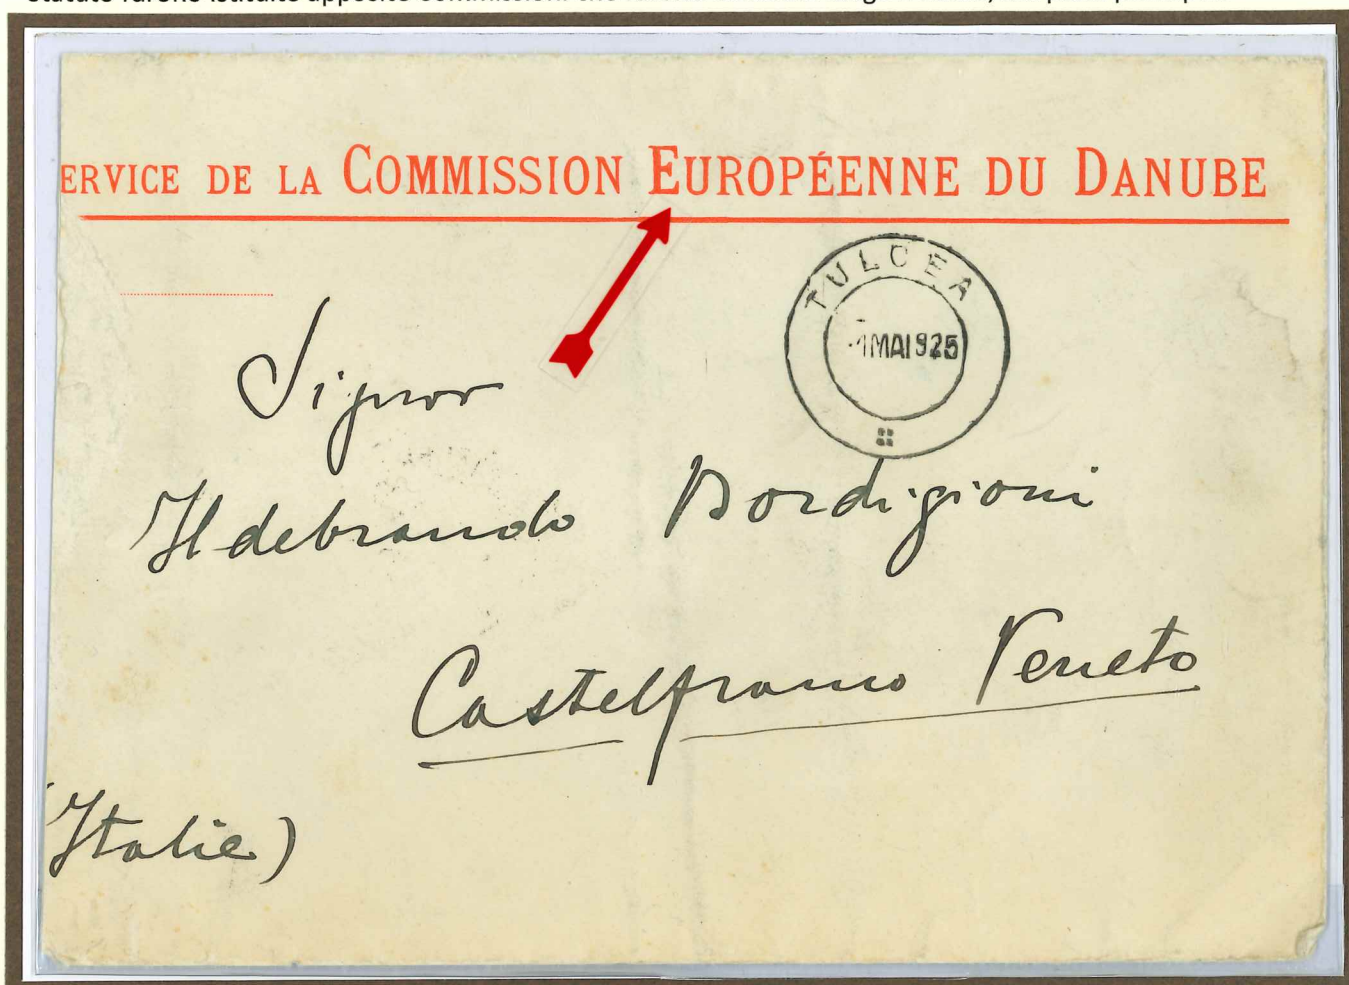 ERVICE DE LA COMMISSION EUROPÉENNE DU DANUBE
TULCEA
1 MAI 925
Signor
Ildebrando Bordigioni
Castelfranco Veneto
Italie)